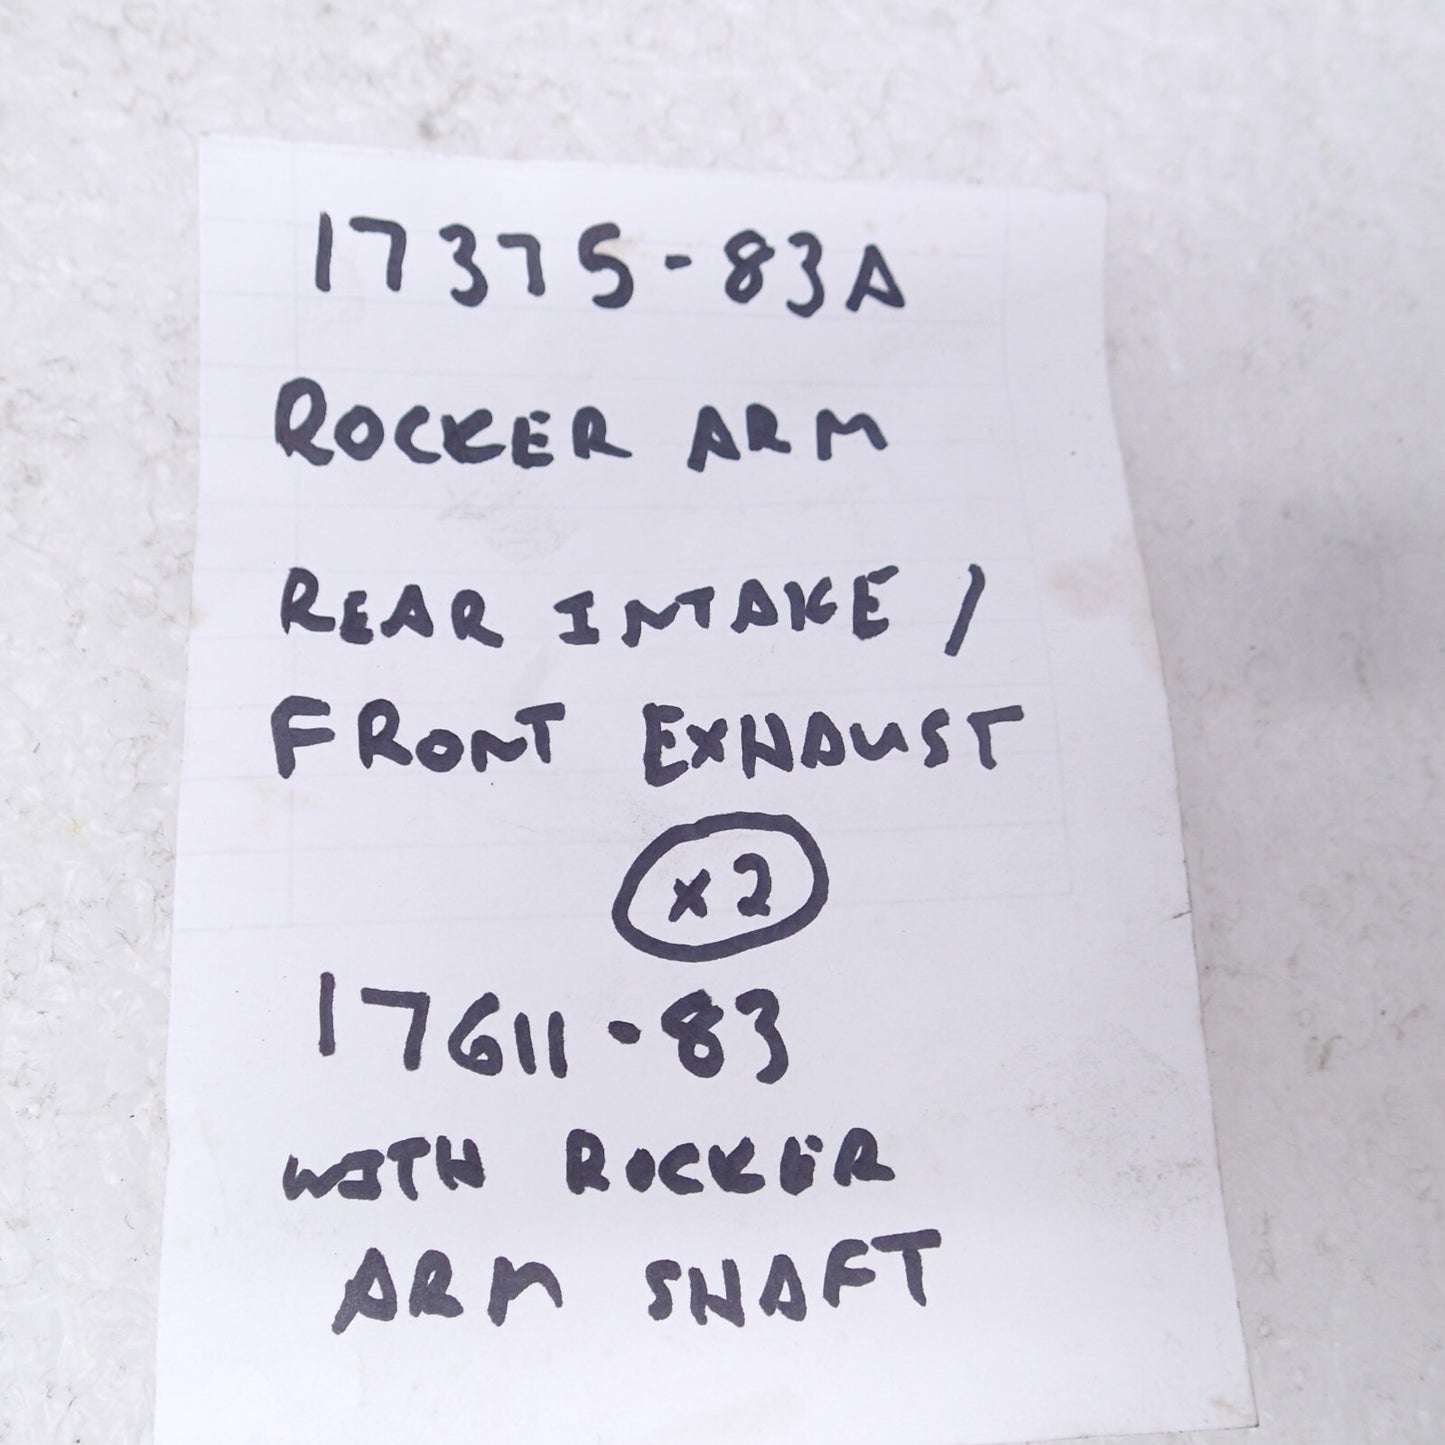 17375-83A
ROCKER ARM
REAR INTAKE /
FRONT EXHAUST
x2
17611-83
WITH ROCKER
ARM SHAFT